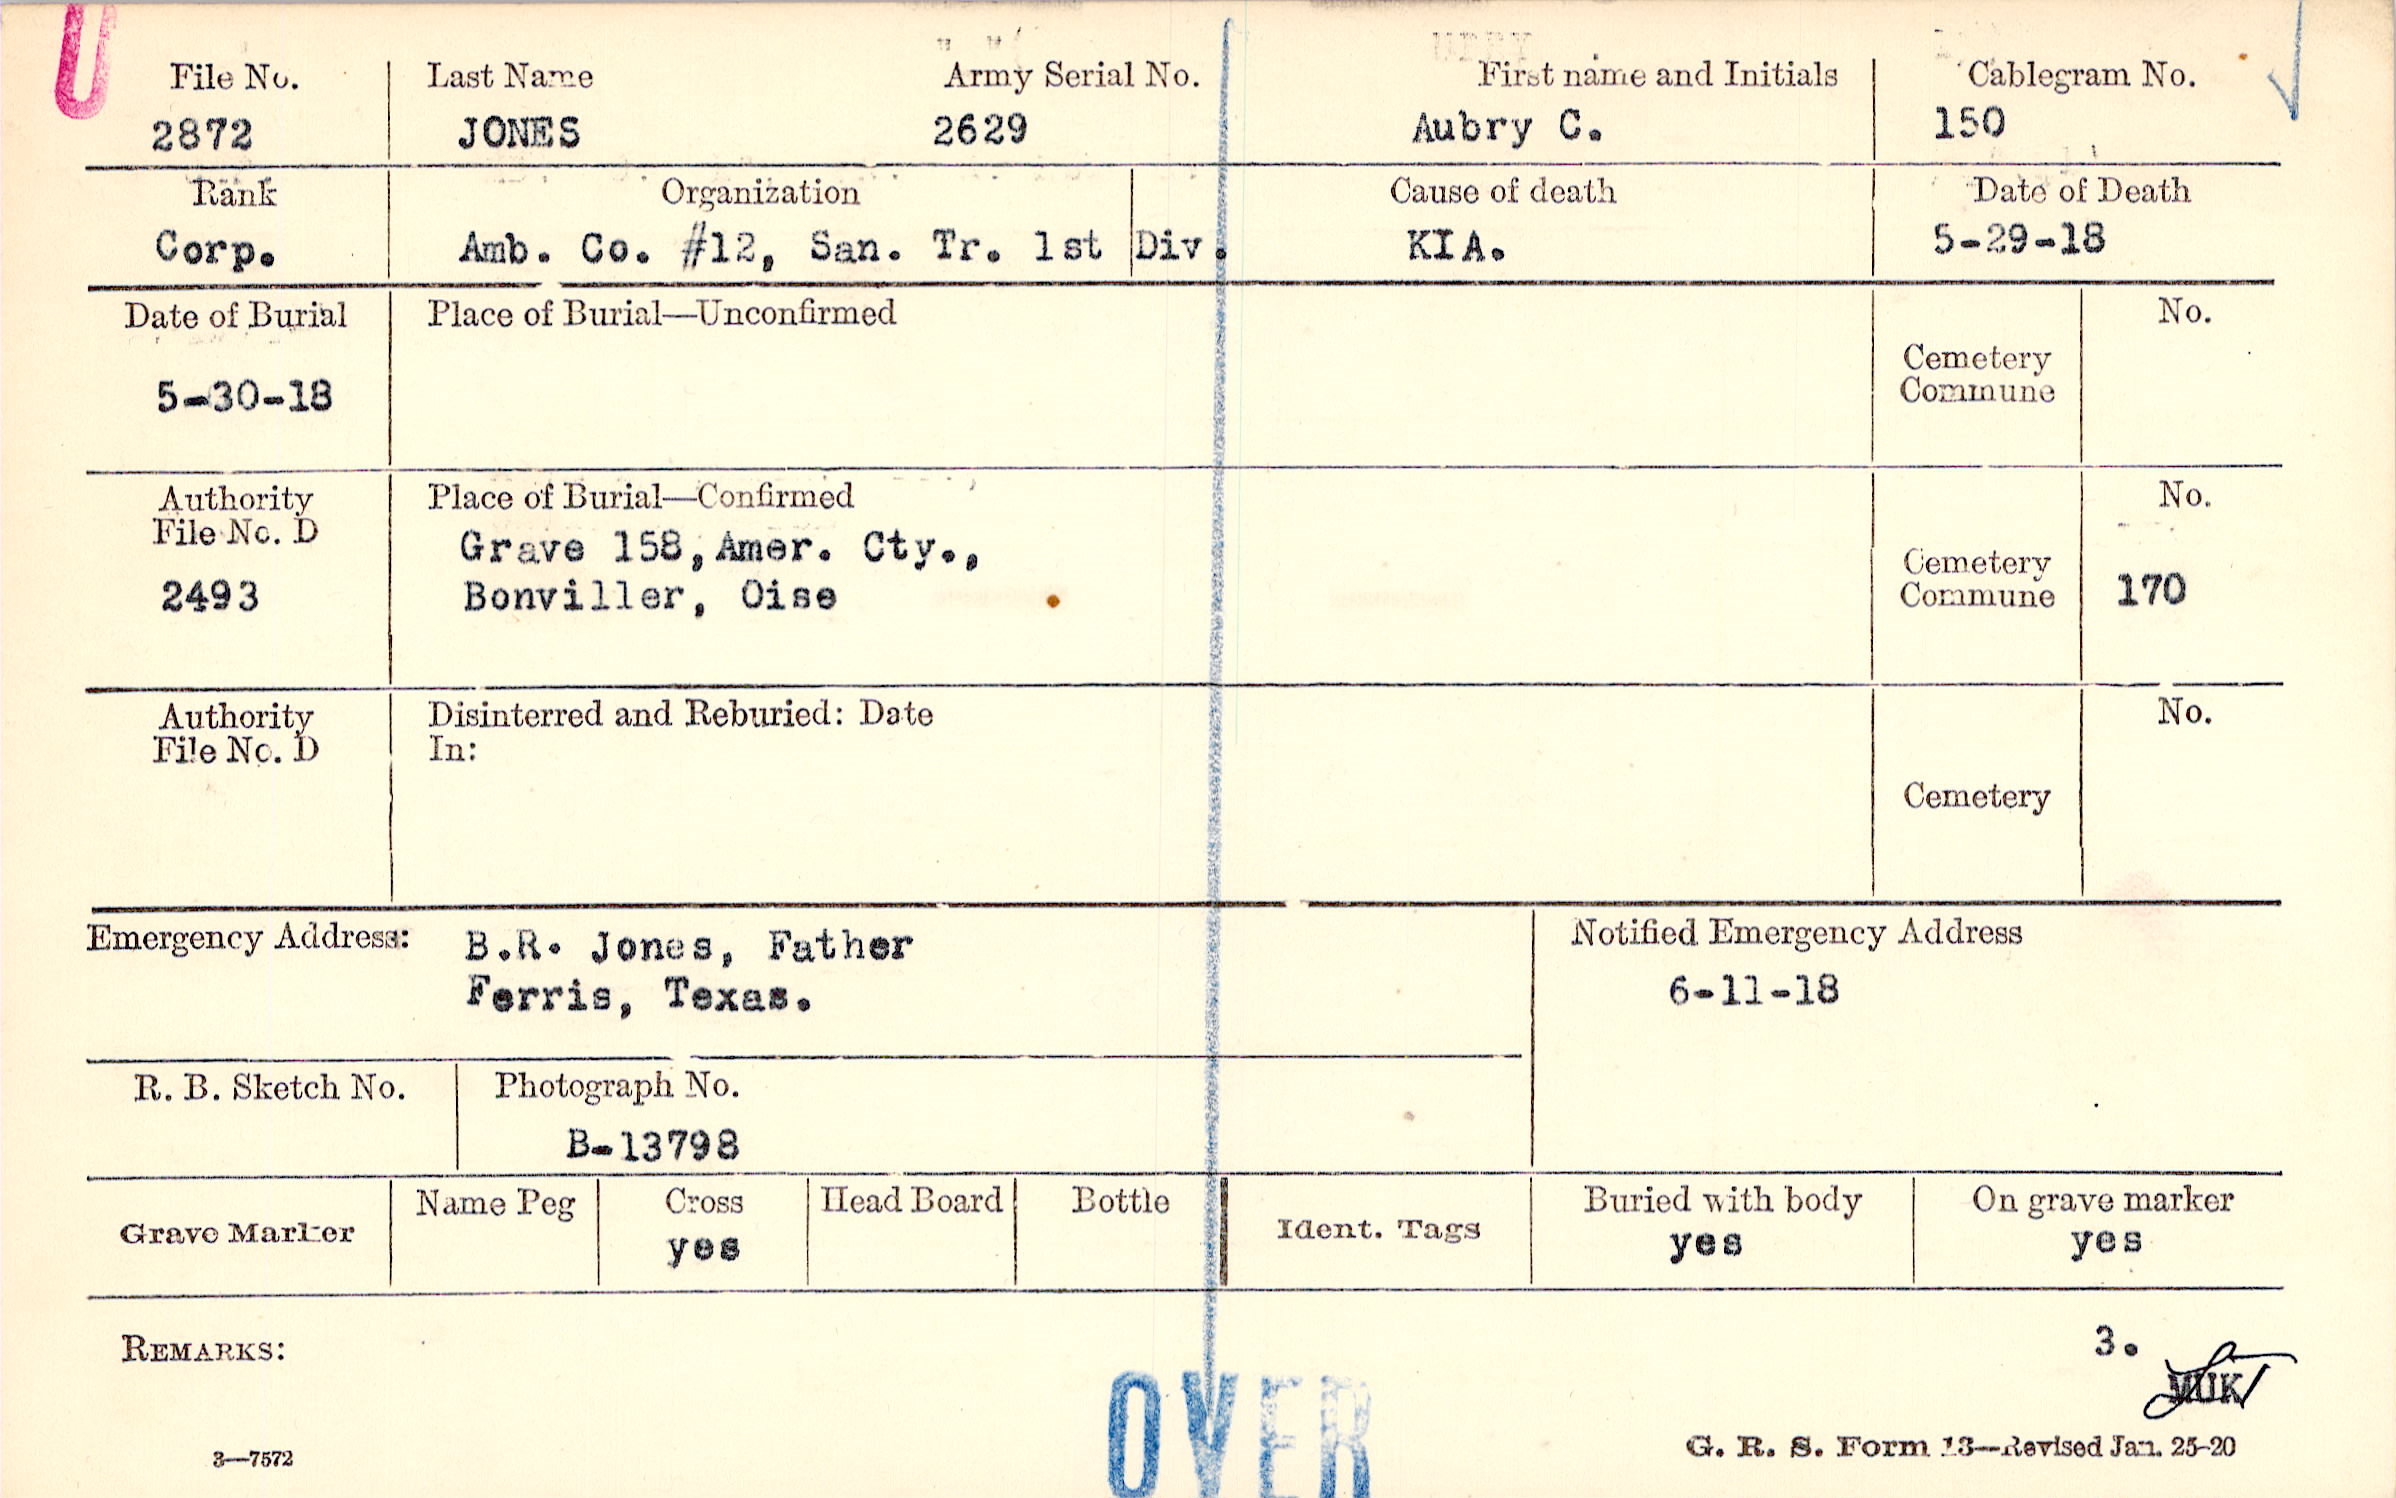 U
File No. Last Name Army Serial No. First name and Initials Cablegram No.
2872 JONES 2629 Aubry C. 150
Rank Organization Cause of death Date of Death
Corp. Amb. Co. #12, San. Tr. 1st Div. KIA. 5-29-18
Date of Burial Place of Burial—Unconfirmed No.
Cemetery
Commune
5-30-18
Authority Place of Burial—Confirmed No.
File No. D
Grave 158, Amer. Cty.,
Cemetery
2493 Bonviller, Oise Commune 170
Authority Disinterred and Reburied: Date No.
File No. D In:
Cemetery
Emergency Address: B.R. Jones, Father Notified Emergency Address
Ferris, Texas. 6-11-18
R. B. Sketch No. Photograph No.
B-13798
Grave Marker Name Peg Cross Head Board Bottle Ident. Tags Buried with body On grave marker
yes yes yes
REMARKS: 3.
MUK
3—7572 OVER G. R. S. Form 13—Revised Jan. 25-20